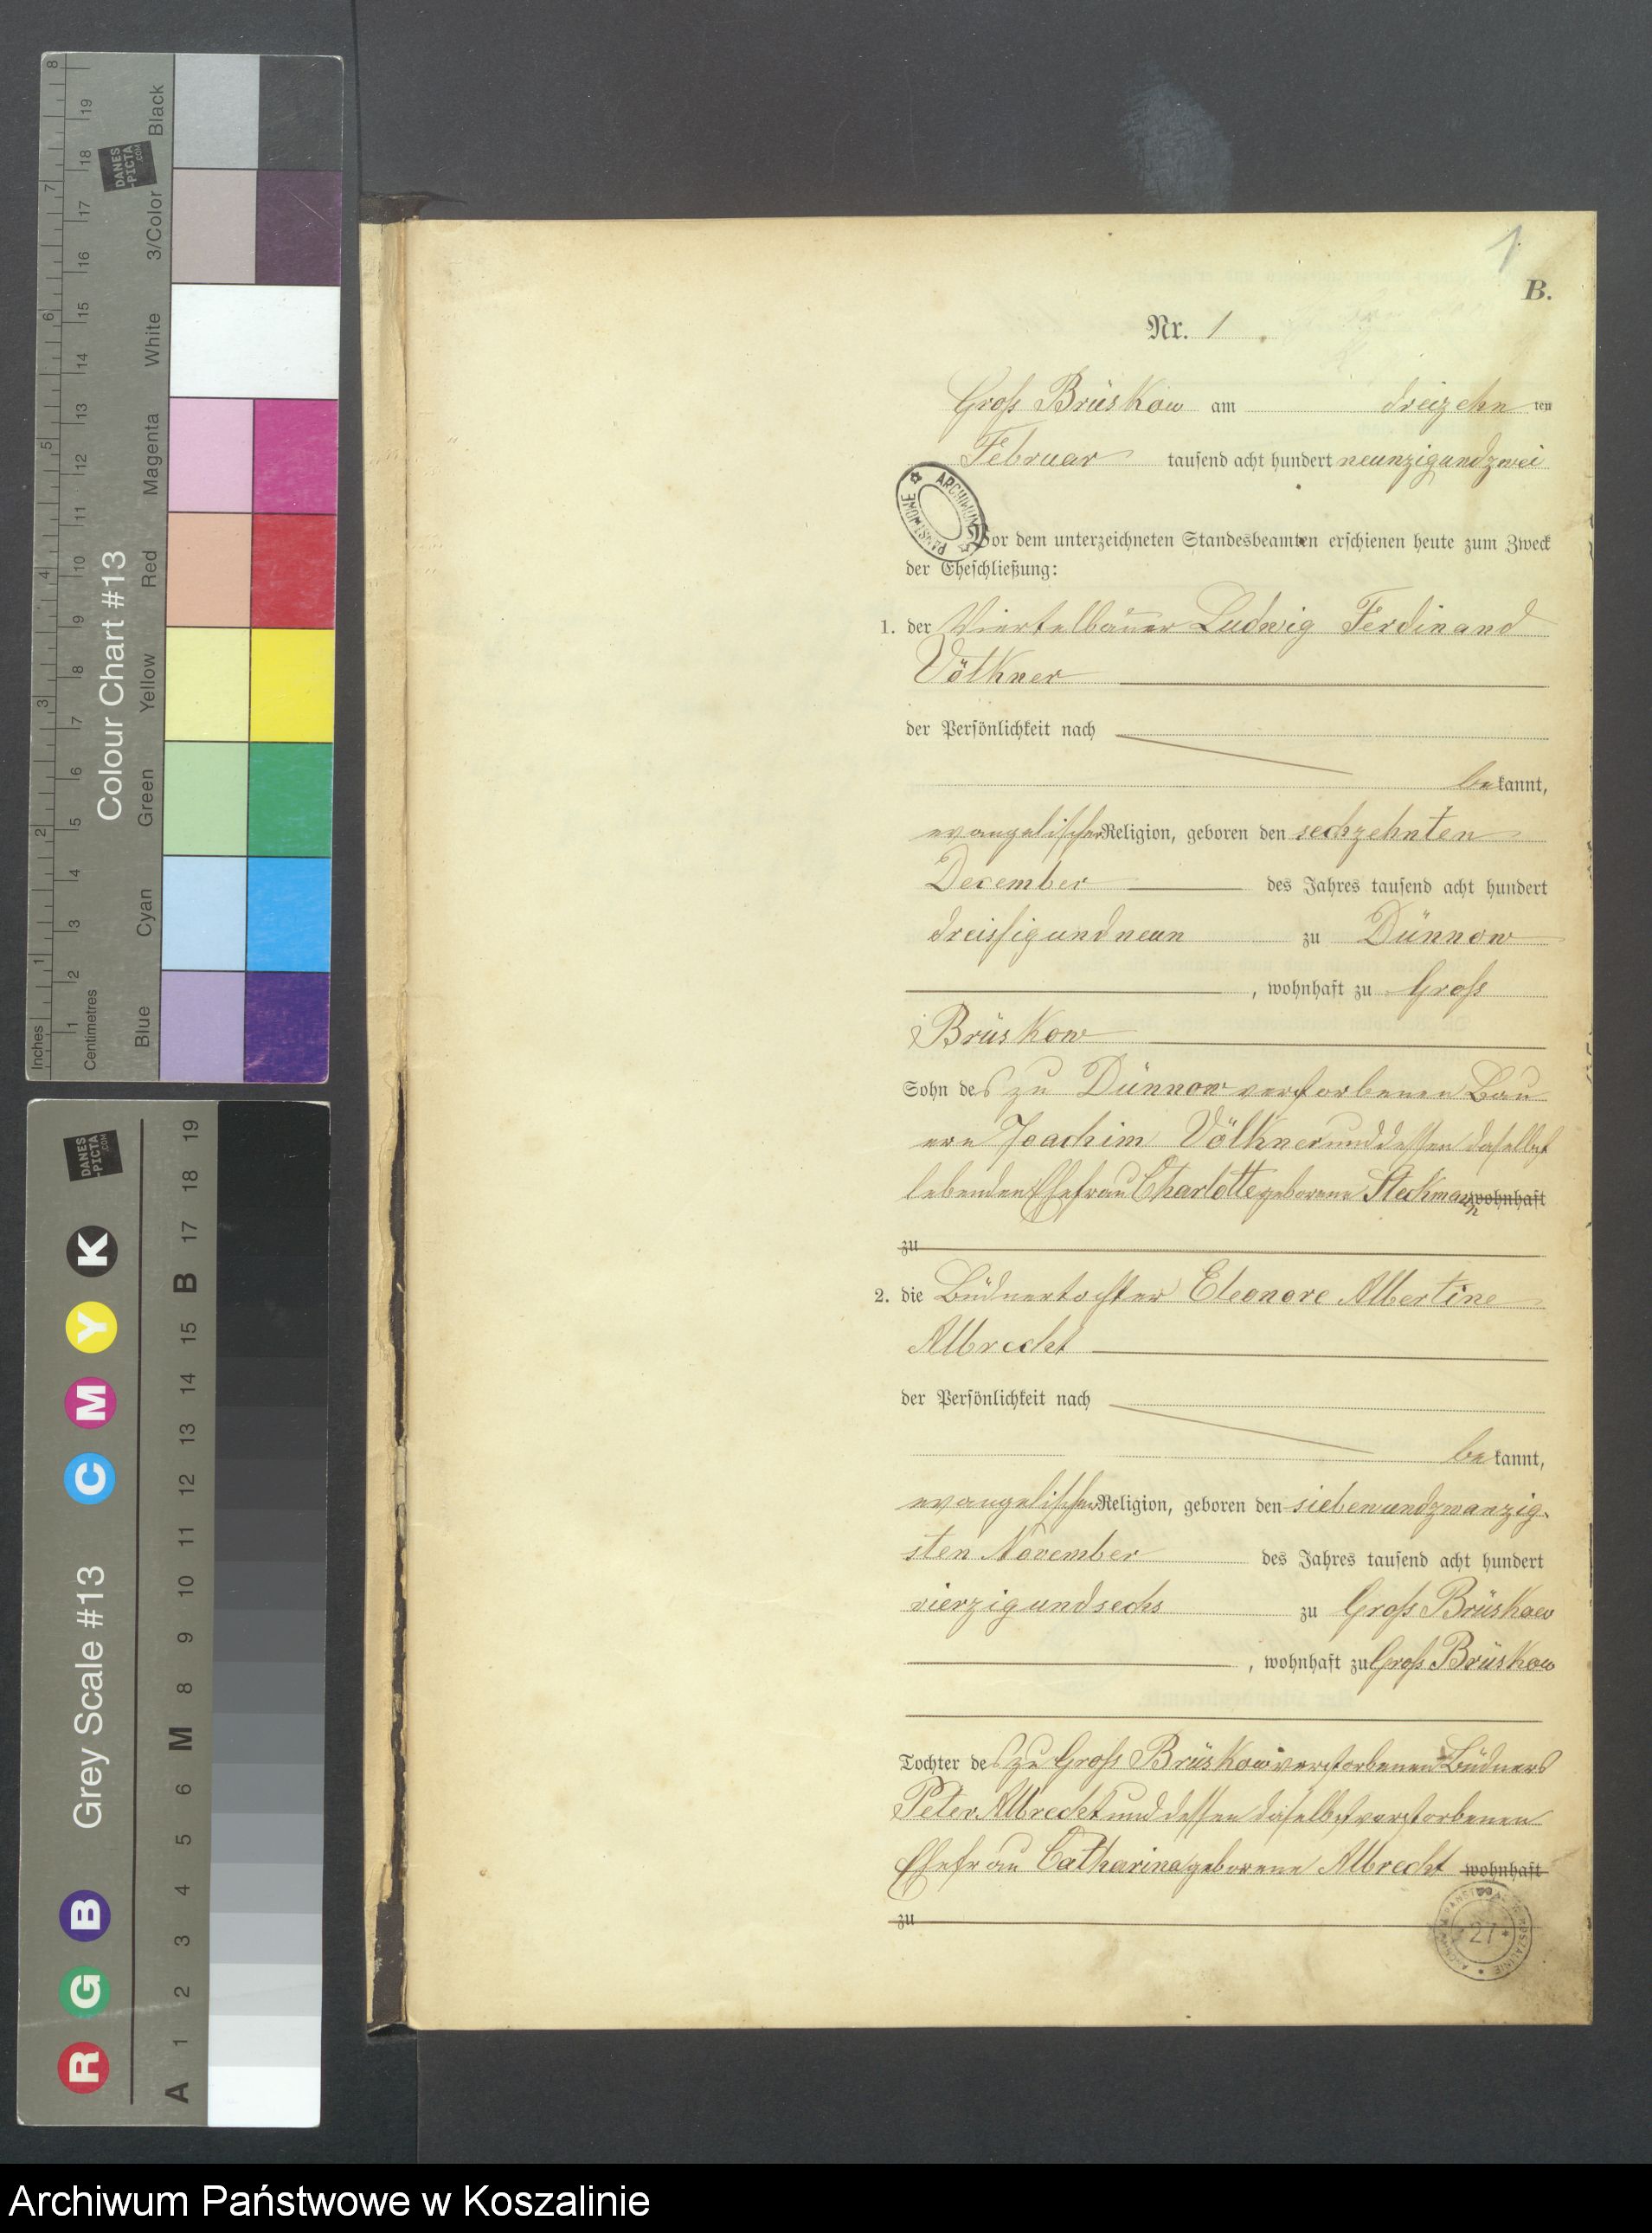 Colour Chart #13
Inches
Centimetres
1 2 3 4 5 6 7 8
1 2 3 4 5 6 7 8 9 10 11 12 13 14 15 16 17 18 19
Blue
Cyan
Green
Yellow
Red
Magenta
White
3/Color
Black
DANES
-PICTA
.COM
Grey Scale #13
R G B
C M Y K
DANES
-PICTA
.COM
A 1 2 3 4 5 6 M 8 9 10 11 12 13 14 15 B 17 18 19
1
B.
Nr. 1
Groß Brüskow am dreizehn ten
Februar tausend acht hundert neunzigundzwei
ARCHIWUM
PAŃSTWOWE
Vor dem unterzeichneten Standesbeamten erschienen heute zum Zweck
der Eheschließung:
1. der Viertelbauer Ludwig Ferdinand
Völkner
der Persönlichkeit nach
bekannt,
evangelischer Religion, geboren den sechzehnten
December des Jahres tausend acht hundert
dreissigundneun zu Dünnow
, wohnhaft zu Groß
Brüskow
Sohn des zu Dünnow verstorbenen Bau
ern Joachim Völkner und dessen daselbst
lebenden Ehefrau Charlotte geborene Steckmann wohnhaft
zu
2. die Büdnertochter Eleonore Albertine
Albrecht
der Persönlichkeit nach
bekannt,
evangelischer Religion, geboren den siebenundzwanzig-
sten November des Jahres tausend acht hundert
vierzigundsechs zu Groß Brüskow
, wohnhaft zu Groß Brüskow
Tochter des zu Groß Brüskow verstorbenen Büdners
Peter Albrecht und dessen daselbst verstorbenen
Ehefrau Catharina geborene Albrecht wohnhaft
zu
27
Archiwum Państwowe w Koszalinie